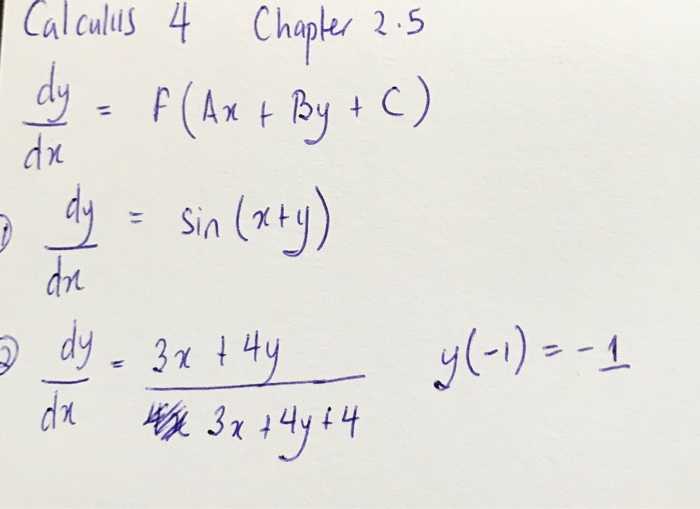 Calculus 4 Chapter 2.5
dy/dx = F(Ax + By + C)
① dy/dx = sin(x+y)
② dy/dx = (3x + 4y)/(3x + 4y + 4) y(-1) = -1